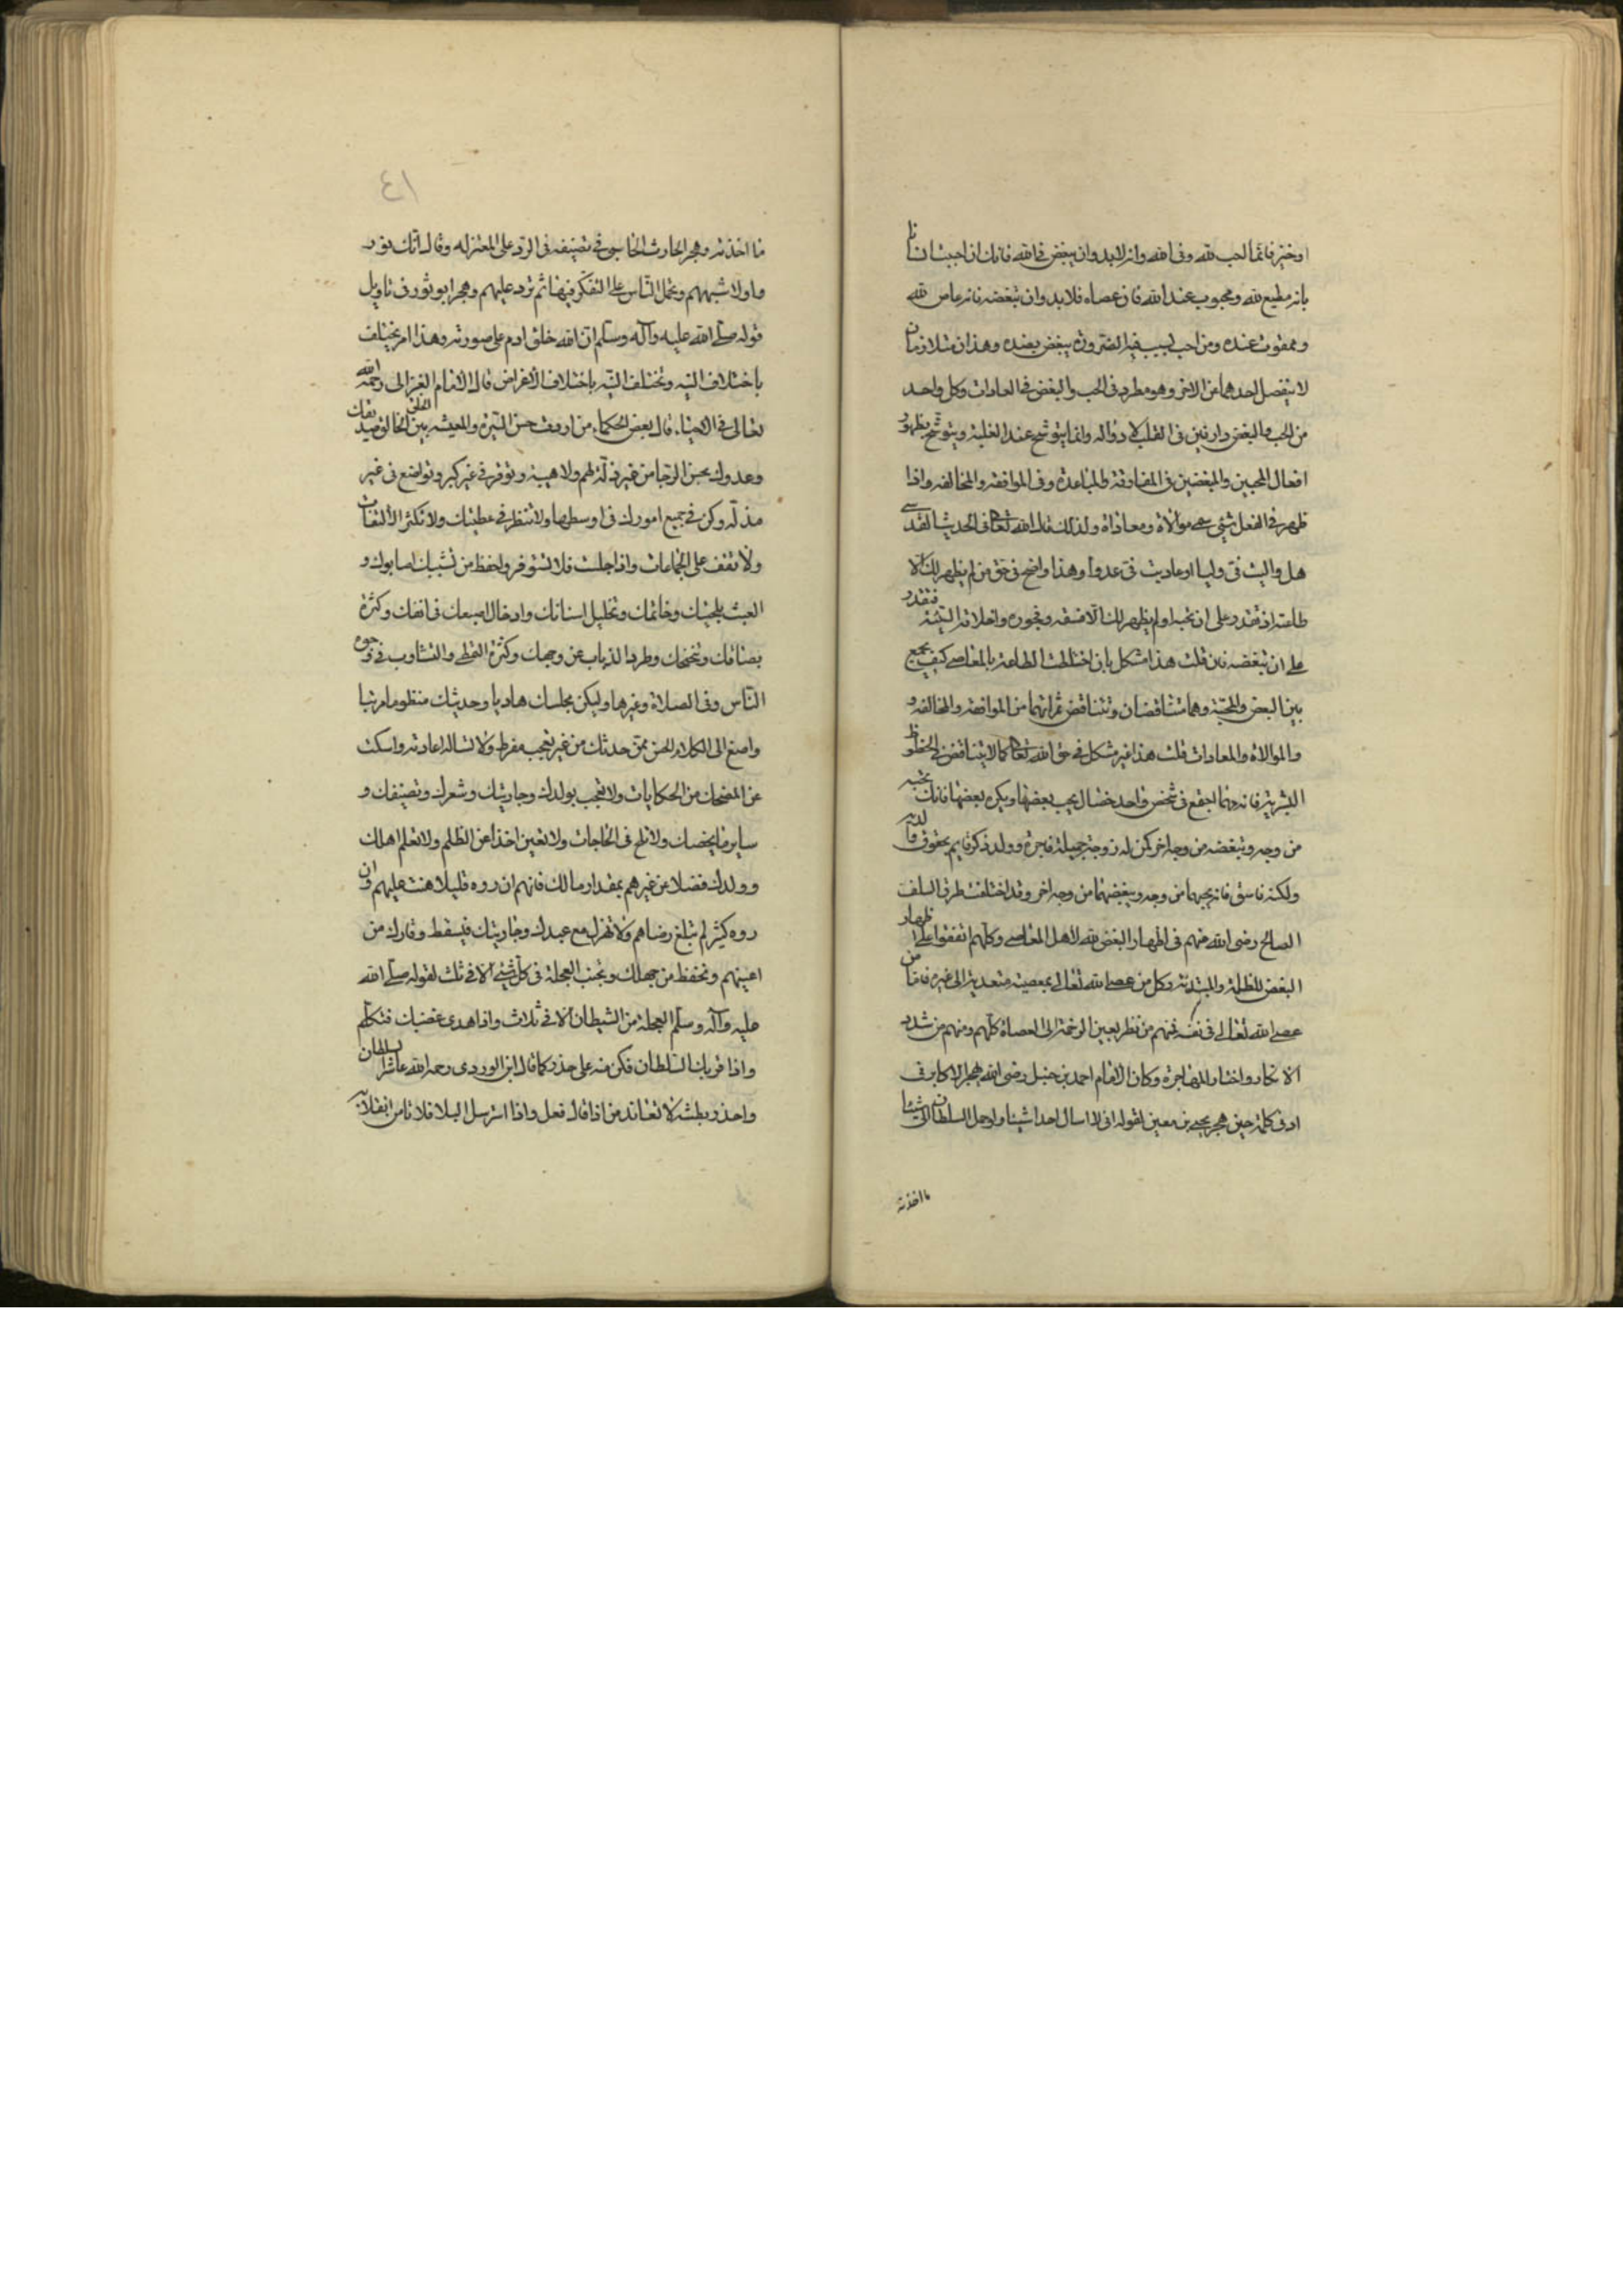 او خير فانما الحب لله وفى الله وانه لابد وان يبغض فى الله فانك ان احببت انسانا
بانه مطيع لله ومحبوب عند الله فان عصاه فلابد وان تبغضه فانه عاص لله
وممقوت عنده ومن احب بسبب فبالضرورة يبغض بضده وهذان متلازمان
لا ينفصل احدهما عن الاخر وهو مطرد فى الحب والبغض فى العادات وكل واحد
من الحب والبغض دا فين فى القلب وانما يترشح عند الغلبة ويترشح بظهور
افعال المحبين والمبغضين فى المقاربة والمباعدة وفى الموافقه والمخالفه واذا
ظهر فى الفعل شئ سمى موالاة ومعاداة ولذلك قال الله تعالى فى الحديث القدسى
هل واليت فى وليا او عاديت فى عدوا وهذا واضح فى حق من لم يظهر لك الا
طاعته اذ تقدر على ان تحبه او لم يظهر لك الا فسقه وفجوره واخلاقه السيئة فتقدر
على ان تبغضه فان قلت هذا مشكل بان اختلطت الطاعة بالمعاصى كيف يجمع
بين البغض والمحبة وهما متناقضان وتتناقض ثمراتهما من الموافقه والمخالفه و
والموالاة والمعادات قلت هذا غير مشكل فى حق الله تعالى كما لا يتناقض فى الحظوظ
البشريه فانه مهما اجتمع فى شخص واحد خصال يحب بعضها ويكره بعضها فانك تحبه
من وجه وتبغضه من وجه اخر كمن له زوجة جميلة فاجرة وولد ذكى قايم بحقوق والديه
ولكنه فاسق فانه يحبهما من وجه ويبغضهما من وجه اخر وقد اختلفت طرق السلف
الصالح رضى الله عنهم فى اظهار البغض لله لاهل المعاصى وكلهم اتفقوا على اظهار
البغض للظلمة والمبتدعة وكل من عصى الله تعالى بمعصية متعدية الى غيره فاما من
عصى الله تعالى فى نفسه فمنهم من نظر بعين الرحمة الى العصاة كلهم ومنهم من شدد
الانكار واختار المهاجرة وكان الامام احمد بن حنبل رضى الله يهجر الاكابر فى
ادنى كلمة حين هجر يحيى بن معين لقوله انى لا اسال احدا شيئا ولو حمل السلطان الى شيئا
ما اخذته
٤١
ما اخذته وهجر الحارث المحاسبى فى تصنيفه فى الرد على المعتزله وقال انك تورد
اولا شبههم وتحمل الناس على التفكر فيها ثم ترد عليهم وهجر ابو ثور فى تاويل
قوله صلى الله عليه وآله وسلم ان الله خلق ادم على صورته وهذا امر يختلف
باختلاف النيه وتختلف النيه باختلاف الاغراض قال الامام الغزالى رحمه الله
تعالى فى الاحياء قال بعض الحكماء من اردت حسن السيرة والمعيشه بين الخلق فالق صديقك
وعدوك بحسن الرضا من غير ذلة لهم ولا هيبة وتوقر فى غير كبر وتواضع فى غير
مذلة وكن فى جميع امورك فى اوسطها ولا تنظر فى عطفيك ولا تكثر الالتفات
ولا تقف على الجماعات واذا جلست فلا تستوفز وتحفظ من تشبيك اصابعك و
العبث بلحيتك وخاتمك وتخليل اسنانك وادخال اصبعك فى انفك وكثرة
بصاقك وتنخمك وطرد الذباب عن وجهك وكثرة التمطى والتثاوب فى وجوه
الناس وفى الصلاة وغيرها وليكن مجلسك هاديا وحديثك منظوما مرتبا
واصغ الى الكلام الحسن ممن حدثك من غير تعجب مفرط ولا تساله اعادته واسكت
عن المضحك من الحكايات ولا تعجب بولدك وجاريتك وشعرك وتصنيفك و
ساير ما يخصك ولا تلح فى الحاجات ولا تعين احدا عن الظلم ولا تعلم اهلك
وولدك فضلا عن غيرهم بمقدار مالك فانهم ان روه قليلا هنت عليهم وان
روه كثير لم تبلغ رضاهم ولا تهزل مع عبدك وجاريتك فيسقط وقارك من
اعينهم وتحفظ من جهلك وتجنب العجلة فى كل شئ الا فى ثلث لقوله صلى الله
عليه وآله وسلم العجلة من الشيطان الا فى ثلاث واذا هدى غضبك فتكلم
واذا قربك السلطان فكن منه على حذر كما قال ابن الوردى رحمه الله السلطان
واحذر بطشه لا تعاند من اذا قال فعل واذا استرسل اليك فلا تامن انقلابه